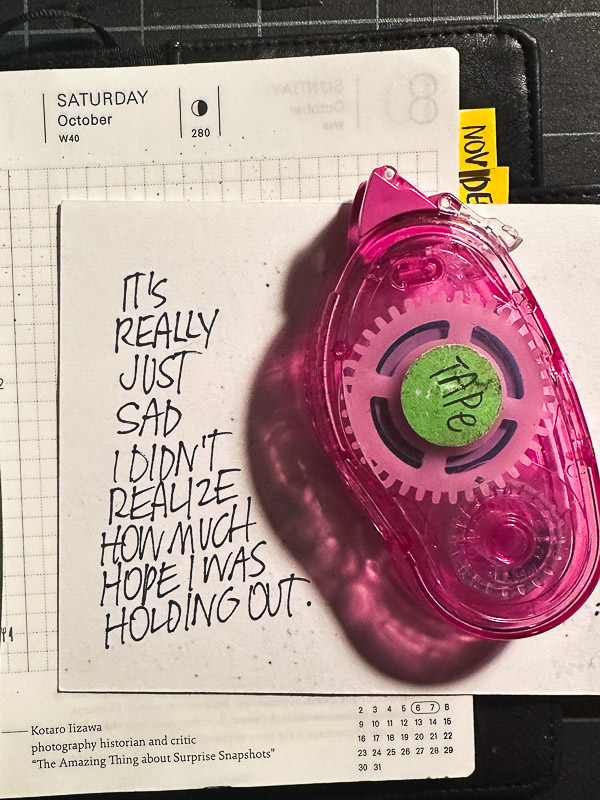 SATURDAY
October
W40
280
SUNDAY
October
W40
8
NOV
DE
IT'S
REALLY
JUST
SAD
I DIDN'T
REALIZE
HOW MUCH
HOPE I WAS
HOLDING OUT.
TAPE
Kotaro Iizawa
photography historian and critic
"The Amazing Thing about Surprise Snapshots"
2 3 4 5 6 7 8
9 10 11 12 13 14 15
16 17 18 19 20 21 22
23 24 25 26 27 28 29
30 31